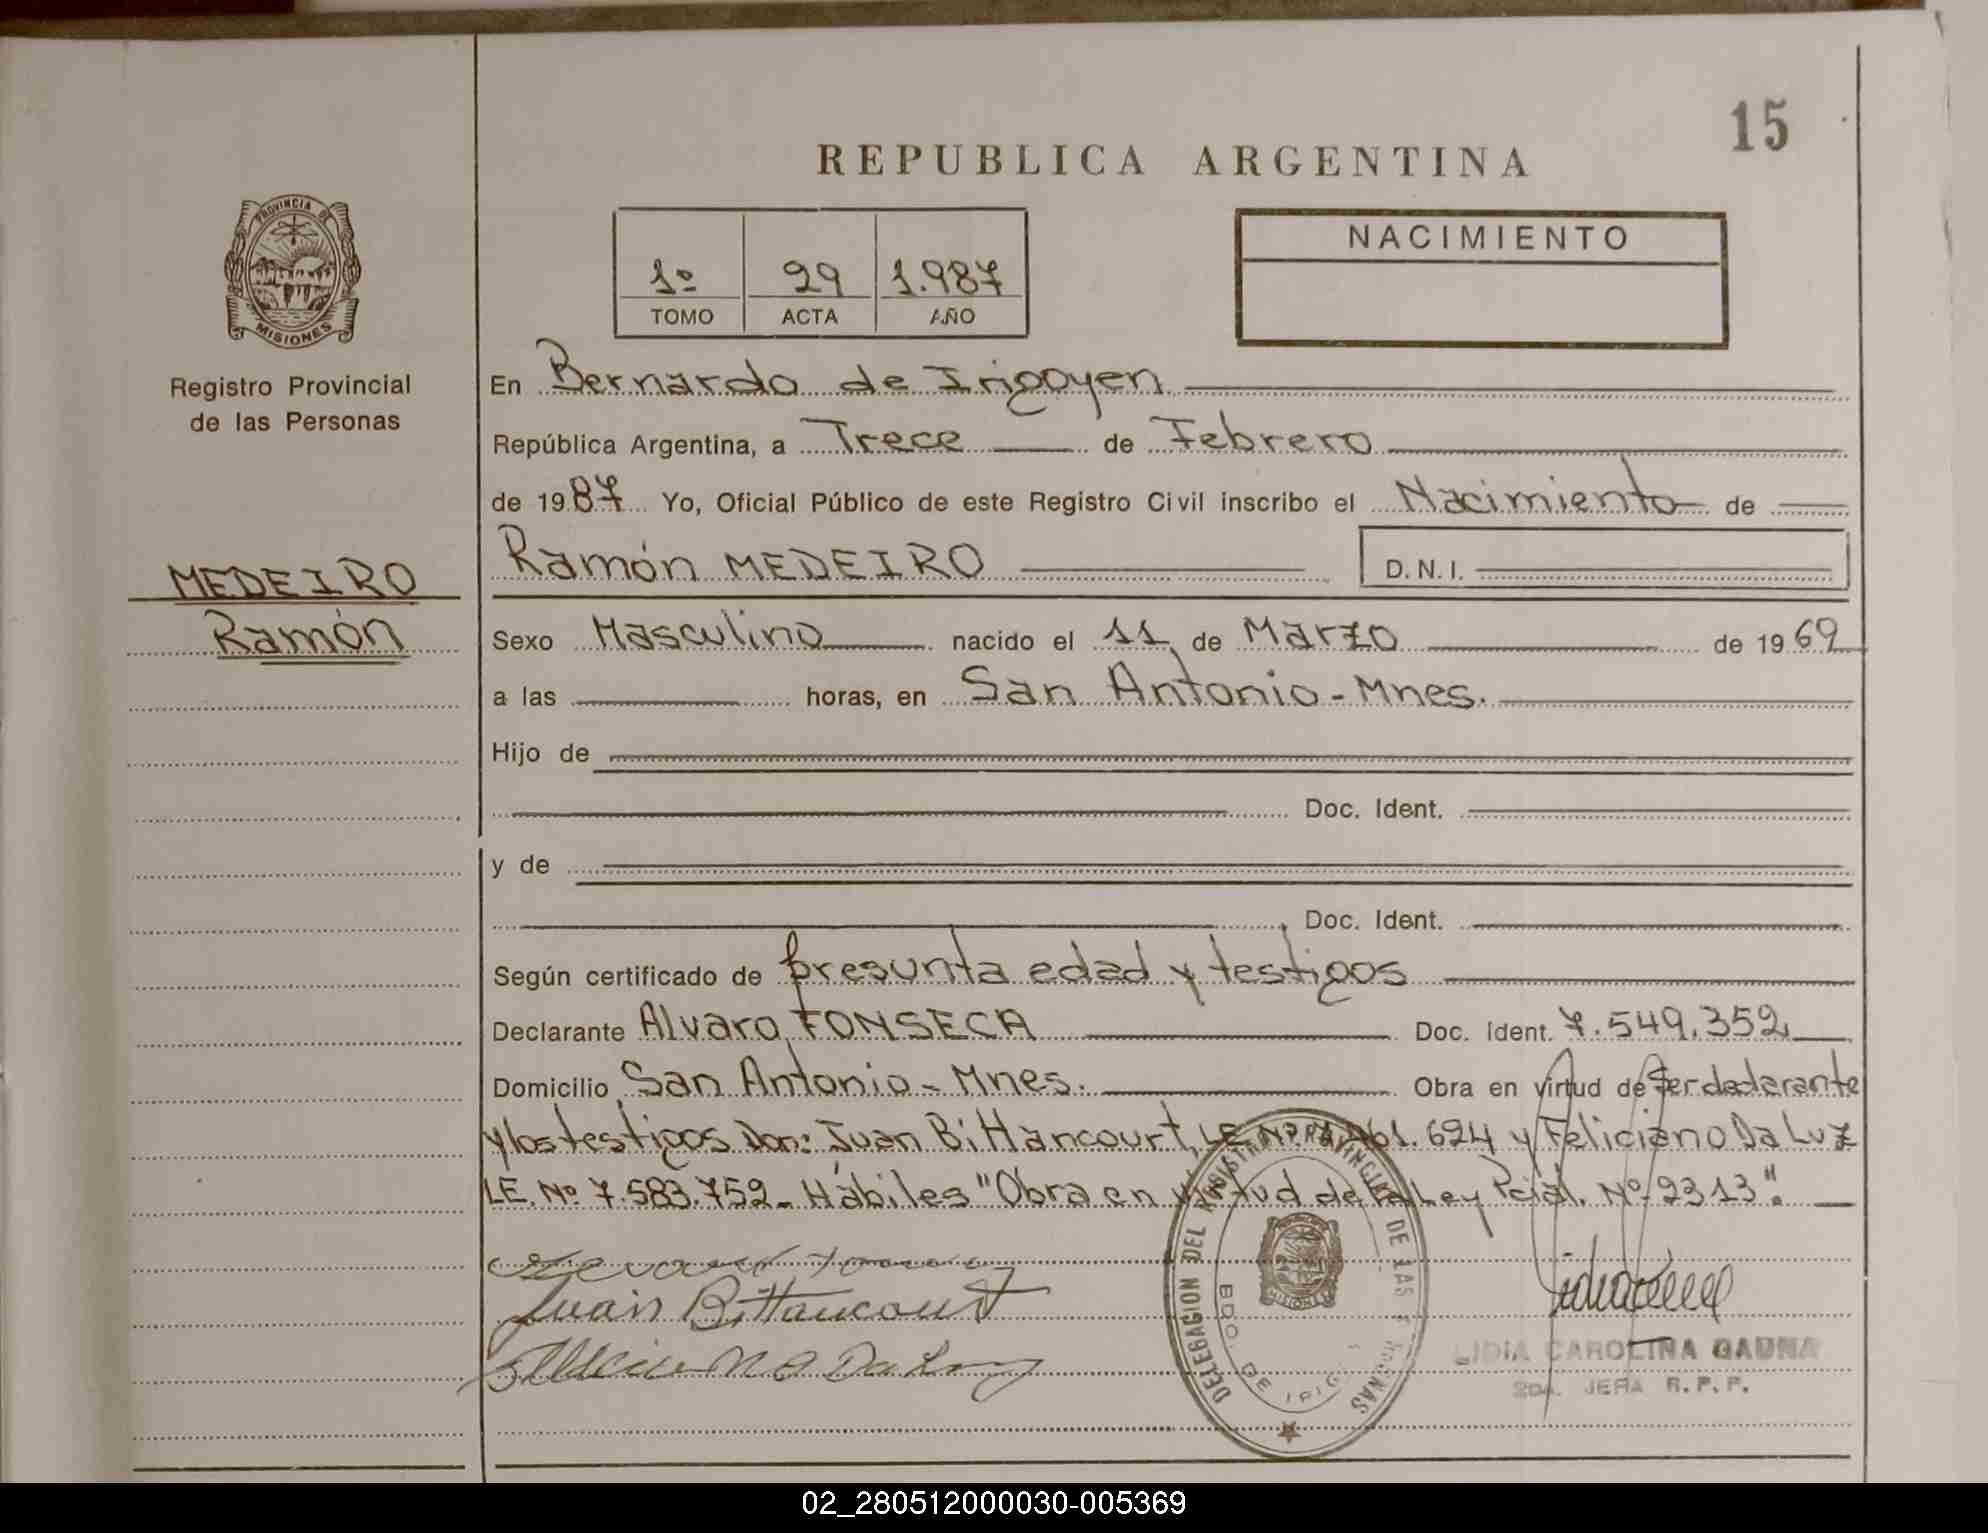 15
REPUBLICA ARGENTINA
PROVINCIA DE
MISIONES
Registro Provincial
de las Personas
1º 29 1.987
TOMO ACTA AÑO
NACIMIENTO
En Bernardo de Irigoyen
República Argentina, a Trece de Febrero
de 1987 Yo, Oficial Público de este Registro Civil inscribo el Nacimiento de
MEDEIRO
Ramón
Ramón MEDEIRO D.N.I.
Sexo Masculino nacido el 11 de Marzo de 1969
a las horas, en San Antonio - Mnes.
Hijo de
Doc. Ident.
y de
Doc. Ident.
Según certificado de presunta edad y testigos
Declarante Alvaro FONSECA Doc. Ident. 7.549.352
Domicilio San Antonio - Mnes. Obra en virtud de Ser declarante
y los testigos Don: Juan Bittancourt, LE Nº 624 y Feliciano Da Luz
LE. Nº 7.583.752 - Hábiles "Obra en virtud de la Ley Pcial. Nº 2313".
Juan Bittancourt
Da Luz
DELEGACION DEL REGISTRO PROVINCIAL DE LAS PERSONAS
BDO. DE IRIG
MISIONES
LIDIA CAROLINA GAUNA
2da. JEFA R.P.P.
02_280512000030-005369